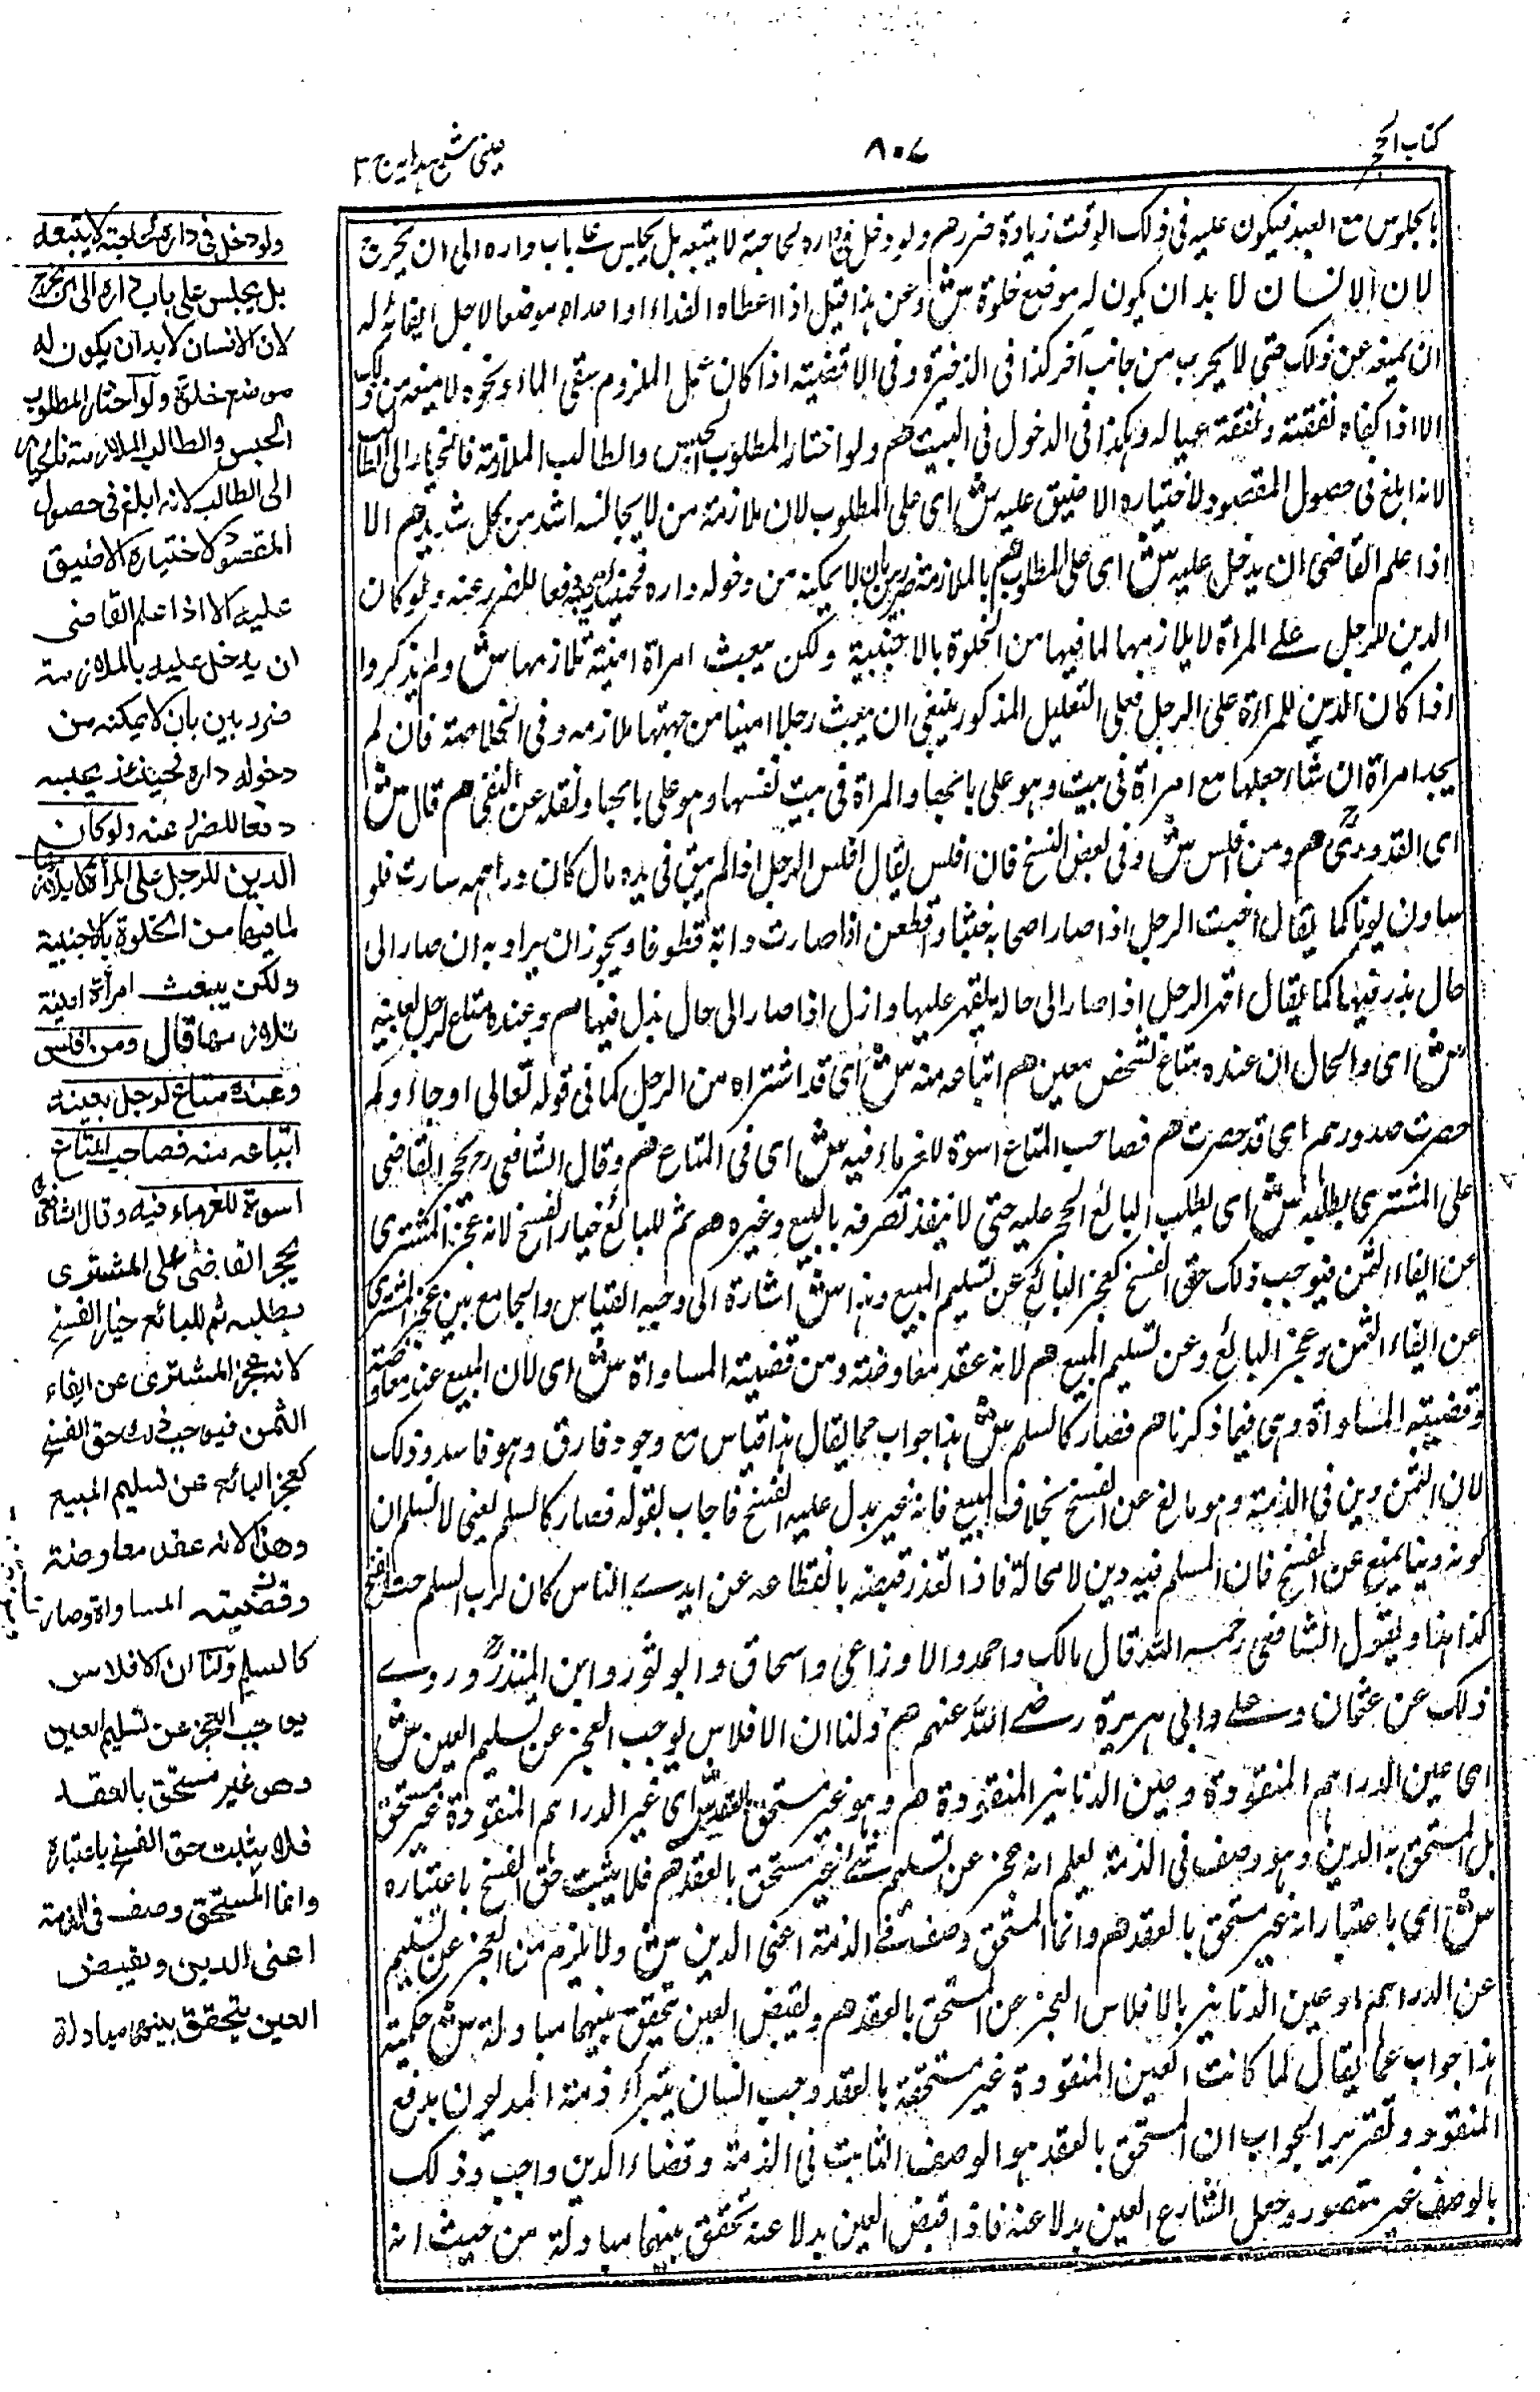 كتاب الحجر
٨٠٧
عينى شرح هدايه ج ٣
بالجلوس مع العبد فيكون عليه فى ذلك الوقت زيادة ضرر هم ولو دخل فى داره لحاجة لا يتبعه بل يجلس على باب داره الى ان يخرج
لان الانسان لا بد ان يكون له موضع خلوة ش وعن هذا قيل اذا اعطاه الغذاء او اعد له موضعا لاجل ايفائه له
ان يمنعه عن ذلك حتى لا يهرب من جانب آخر كذا فى الذخيرة وفى الاقضية اذا كان عمل الملزوم سقى الماء ونحوه لا يمنعه من ذلك
الا اذا كفاه نفقته ونفقة عياله وهكذا فى الدخول فى البيت هم ولو اختار المطلوب الحبس والطالب الملازمة فالخيار الى الطالب
لانه ابلغ فى حصول المقصود لاختياره الاضيق عليه ش اى على المطلوب لان ملازمة من لا يجالسه اشد من كل شديد هم الا
اذا علم القاضى ان يدخل عليه ش اى على المطلوب هم بالملازمة ضرر بين بان لا يمكنه من دخوله داره فحينئذ يحبسه دفعا للضرر عنه ولو كان
الدين للرجل على المرأة لا يلازمها لما فيها من الخلوة بالاجنبية ولكن يبعث امرأة امينة تلازمها ش ولم يذكروا
اذا كان الدين للمرأة على الرجل فعلى التعليل المذكور ينبغى ان يبعث رجلا امينا من جهتها يلازمه وفى الخلاصة فان لم
يجد امرأة ان شاء جعلها مع امرأة فى بيت وهو على بابها والمرأة فى بيت نفسها وهو على بابها ونقله عن النفى هم قال ش
اى القدورى هم ومن افلس ش وفى بعض النسخ فان افلس يقال افلس الرجل اذا لم يبق فى يده مال كان دراهمه صارت فلو
سا ون يونا كما يقال اخبث الرجل اذا صار اصحابه خبثا واقطعن اذا صارت دابة قطوفا ويجوز ان يراد به ان صار الى
حال يذر فيها كما يقال اقهر الرجل اذا صار الى حالة يقهر عليها واذل اذا صار الى حال يذل فيها هم وعنده متاع لرجل بعينه
ش اى والحال ان عنده متاع لشخص معين هم ابتاعه منه ش اى قد اشتراه من الرجل كما فى قوله تعالى او جاءوكم
حصرت صدورهم اى قد حصرت هم فصاحب المتاع اسوة للغرماء فيه ش اى فى المتاع هم وقال الشافعى رح يحجر القاضى
على المشترى بطلبه ش اى بطلب البائع الحجر عليه حتى لا ينفذ تصرفه بالبيع وغيره هم ثم للبائع خيار الفسخ لانه عجز المشترى
عن ايفاء الثمن فيوجب ذلك حق الفسخ كعجز البائع عن تسليم المبيع وهذا ش اشارة الى وجه القياس والجامع بين عجز المشترى
عن ايفاء الثمن وعجز البائع وعن تسليم المبيع هم لانه عقد معاوضة ومن قضيته المساواة ش اى لان المبيع عقد معاوضة
وقضيته المساواة وهى فيما ذكرنا هم فصار كالسلم ش هذا جواب عما يقال هذا قياس مع وجود فارق وهو فاسد وذلك
لان الثمن دين فى الذمة وهو مانع عن الفسخ بخلاف المبيع فانه غير بدل عليه الفسخ فاجاب بقوله فصار كالسلم يعنى لا نسلم ان
كونه دينا يمنع عن الفسخ فان المسلم فيه دين لا محالة فاذا تعذر قبضه بانقطاعه عن ايدى الناس كان لرب السلم حق الفسخ
كذا هنا وبقول الشافعى رحمه الله قال مالك واحمد والاوزاعى واسحاق وابو ثور وابن المنذر وروى
ذلك عن عثمان وعلى وابى هريرة رضى الله عنهم هم ولنا ان الافلاس يوجب العجز عن تسليم العين ش
اى عين الدراهم المنقودة وعين الدنانير المنقودة هم وهو غير مستحق بالعقد ش اى غير الدراهم المنقودة غير مستحق
بل المستحق به الدين وهو وصف فى الذمة يعلم انه عجز عن تسليم شئ غير مستحق بالعقد هم فلا يثبت حق الفسخ باعتباره
ش اى باعتبار انه غير مستحق بالعقد هم وانما المستحق وصف فى الذمة اعنى الدين ش ولا يلزم من العجز عن تسليم
عن الدراهم او عين الدنانير بالافلاس العجز عن المستحق بالعقد هم وبقبض العين تحقق بينهما مبادلة ش حكمية
هذا جواب عما يقال لما كانت العين المنقودة غير مستحقة بالعقد وجب ان يتبراء ذمة المديون بدفع
المنقود وتقرير الجواب ان المستحق بالعقد هو الوصف الثابت فى الذمة وقضاء الدين واجب وذلك
بالوصف غير متصور وجعل الشارع العين بدلا عنه فاذا قبض العين بدلا عنه تحقق بينهما مبادلة من حيث انه
ولو دخل فى داره لحاجة لا يتبعه
بل يجلس على باب داره الى ان يخرج
لان الانسان لا بد ان يكون له
موضع خلوة ولو اختار المطلوب
الحبس والطالب الملازمة فالخيار
الى الطالب لانه ابلغ فى حصول
المقصود لاختياره الاضيق
عليه الا اذا علم القاضى
ان يدخل عليه بالملازمة
ضرر بين بان لا يمكنه من
دخوله داره فحينئذ يحبسه
دفعا للضرر عنه ولو كان
الدين للرجل على المرأة لا يلازمها
لما فيها من الخلوة بالاجنبية
ولكن يبعث امرأة امينة
تلازمها قال ومن افلس
وعنده متاع لرجل بعينه
ابتاعه منه فصاحب المتاع
اسوة للغرماء فيه وقال الشافعى
يحجر القاضى على المشترى
بطلبه ثم للبائع خيار الفسخ
لانه عجز المشترى عن ايفاء
الثمن فيوجب ذلك حق الفسخ
كعجز البائع عن تسليم المبيع
وهذا لانه عقد معاوضة
وقضيته المساواة وصار
كالسلم ولنا ان الافلاس
يوجب العجز عن تسليم العين
وهو غير مستحق بالعقد
فلا يثبت حق الفسخ باعتباره
وانما المستحق وصف فى الذمة
اعنى الدين وبقبض
العين يتحقق بينهما مبادلة